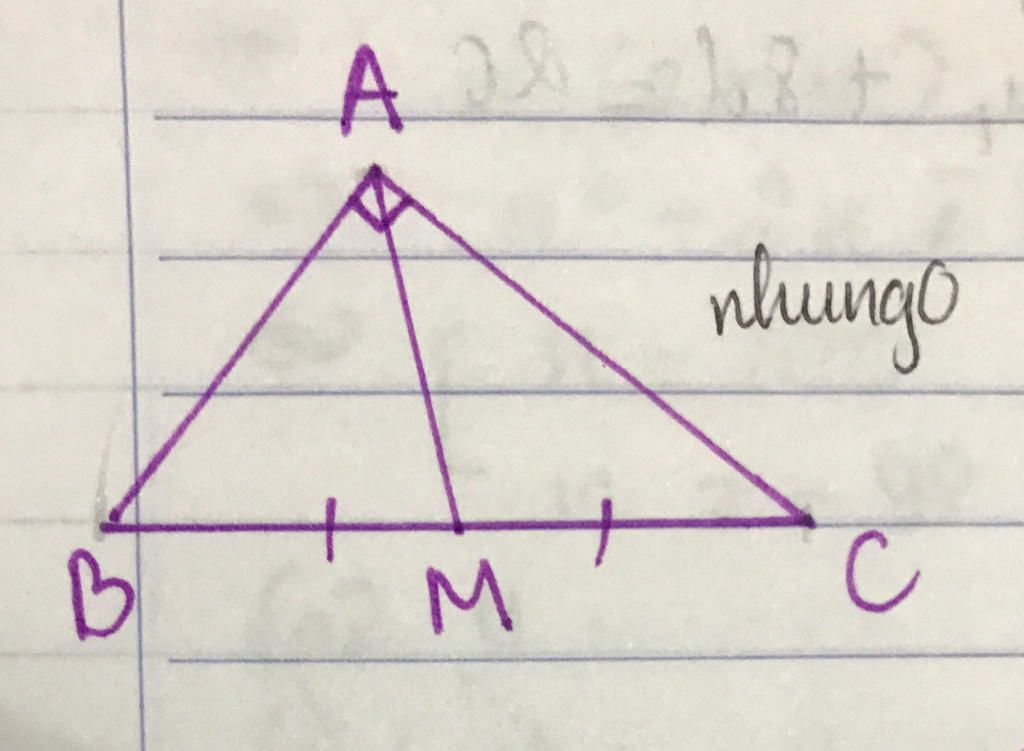 A
nhungo
B M C